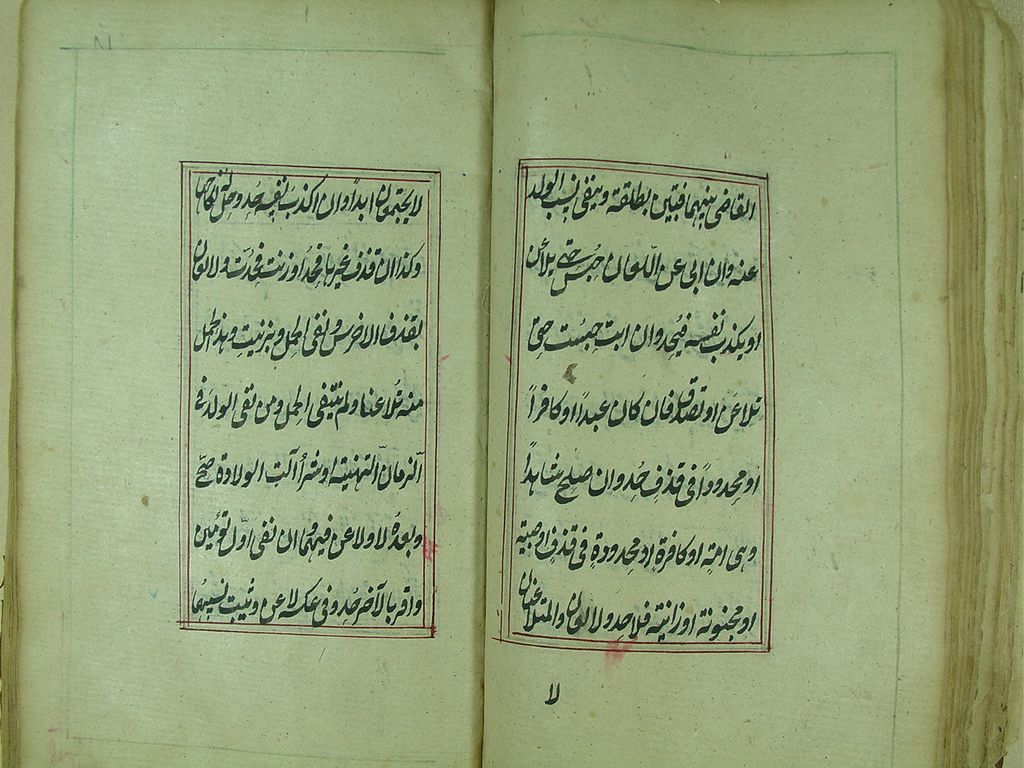 القاضى بينهما فتبين بطلقة وينفى نسب الولد
عنه وان ابى عن اللعان حبس حتى يلاعن
او يكذب نفسه فيحد وان ابت حبست حتى
تلاعن او تصدق فان كان عبداً او كافراً
او محدوداً فى قذف حُد وان صلح شاهداً
وهى امة او كافرة او محدودة فى قذف او صبية
او مجنونة او زانية فلا حد ولا لعان والمتلاعنان
لا
لا يجتمعان ابداً وان اكذب نفسه حُد وحل له نكاحها
وكذا ان قذف غيرها فحُد او زنت فحُدّت ولا لعان
بقذف الاخرس ونفى الحمل وبزنيت وهذا الحمل
منه تلاعنا ولم ينتفى الحمل ومن نفى الولد فى
الزمان التهنية او شرآ آلت الولادة صحّ
وبعده لا ولاعن فيهما وان نفى اوّل توأمين
واقر بالآخر حُد وفى عكسه لاعن وثبت نسبهُما